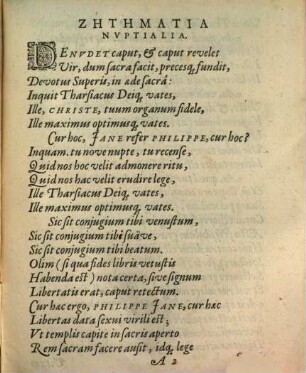 ΖΗΤΗΜΑΤΙΑ
NVPTIALIA.
DENVDET caput, & caput revelet
Vir, dum sacra facit, precesq, fundit,
Devotus Superis, in æde sacrâ:
Inquit Tharsiacus Deiq, vates,
Ille, CHRISTE, tuum organum fidele,
Ille maximus optimusq, vates.
Cur hoc, JANE refer PHILIPPE, cur hoc?
Inquam. tu nove nupte, tu recense,
Quid nos hoc velit admonere ritu,
Quid nos hac velit erudire lege,
Ille Tharsiacus Deiq, vates,
Ille maximus optimusq, vates.
Sic sit conjugium tibi venustum,
Sic sit conjugium tibi suäve,
Sic sit conjugium tibi beatum.
Olim (si qua fides libris vetustis
Habenda est) nota certa, sive signum
Libertatis erat, caput retectum.
Cur hac ergo, PHILIPPE JANE, cur hæc
Libertas data sexui virili est,
Vt templis capite in sacris aperto
Rem sacram facere ausit, idq, lege
A 2